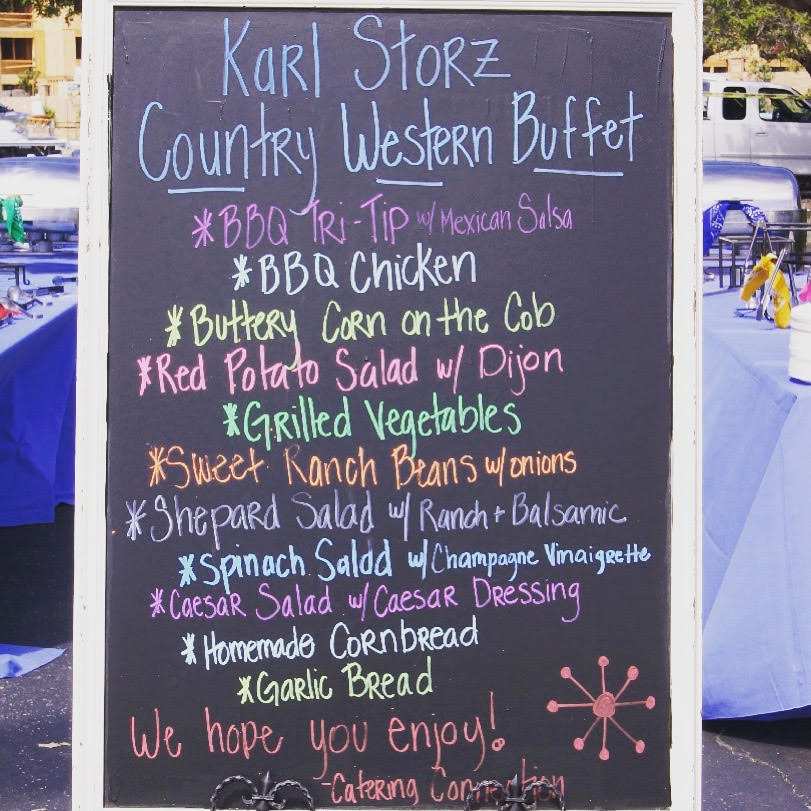 Karl Storz
Country Western Buffet
*BBQ Tri-Tip w/ Mexican Salsa
*BBQ Chicken
*Buttery Corn on the Cob
*Red Potato Salad w/ Dijon
*Grilled Vegetables
*Sweet Ranch Beans w/ onions
*Shepard Salad w/ Ranch + Balsamic
*Spinach Salad w/ Champagne Vinaigrette
*Caesar Salad w/ Caesar Dressing
*Homemade Cornbread
*Garlic Bread
We hope you enjoy!
-Catering Connection